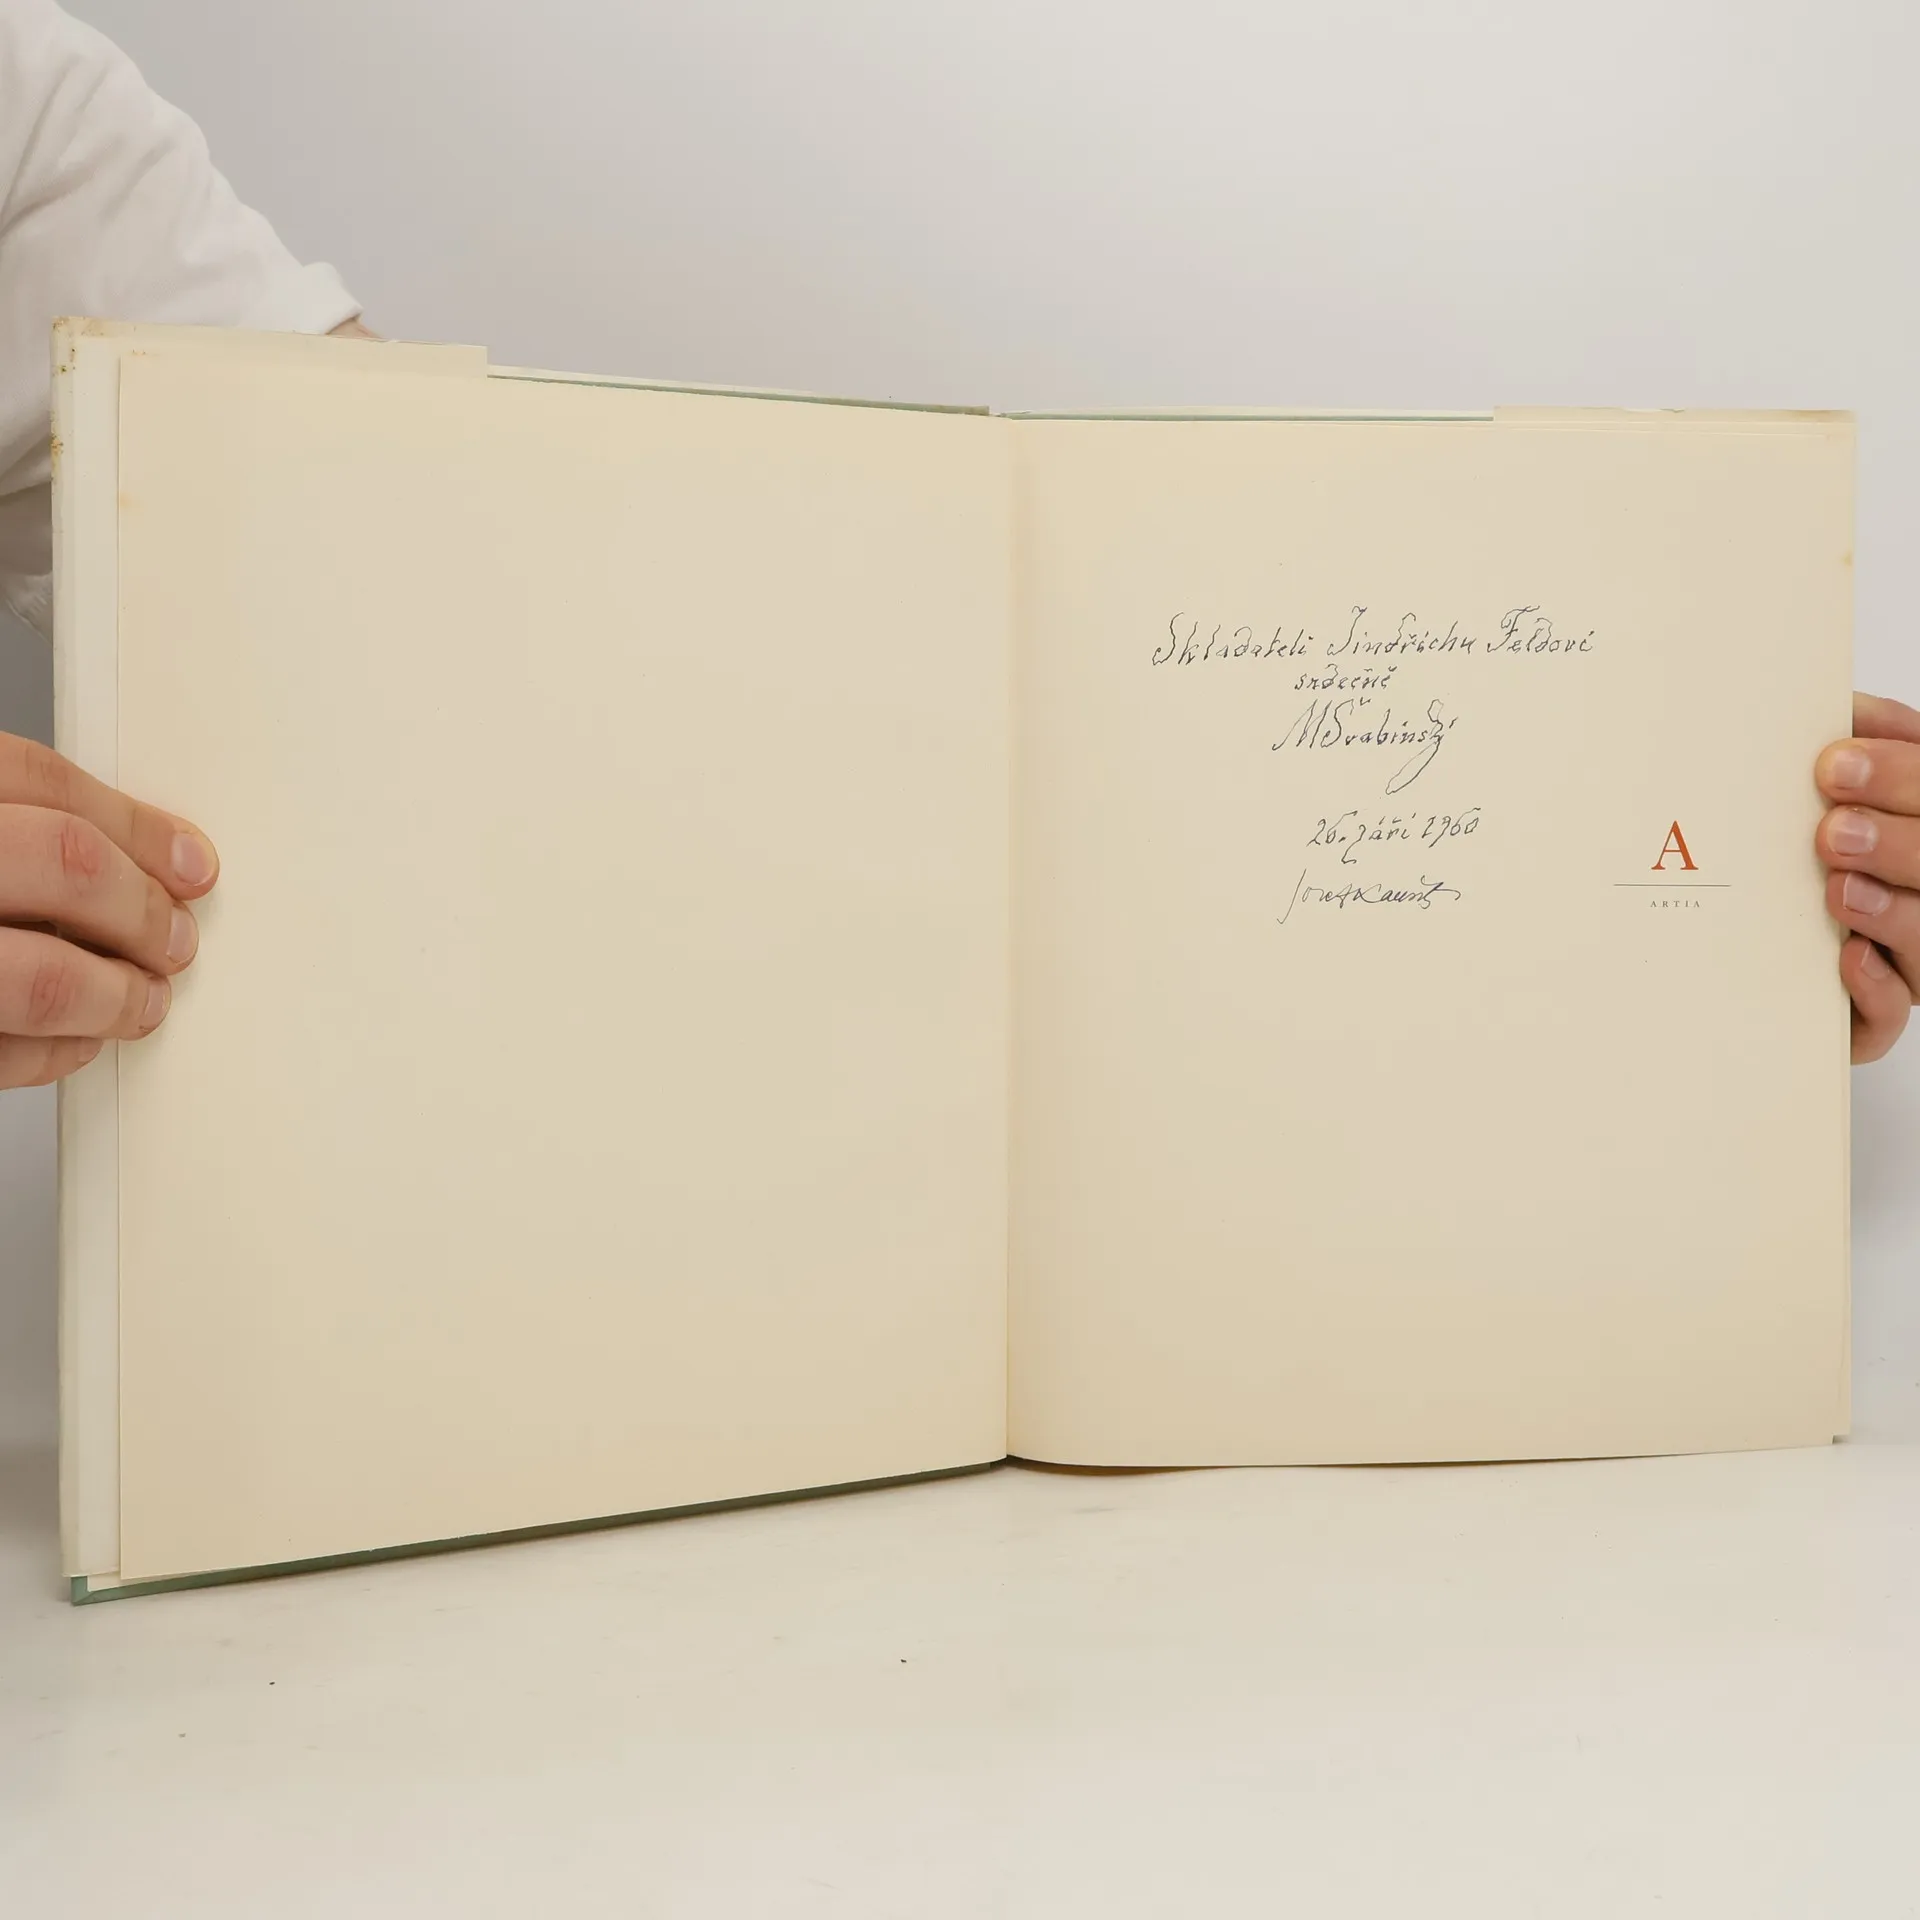 Skladateli Jindřichu Feldovi
srdečně
MŠvabinský
26. září 1960
A
ARTIA